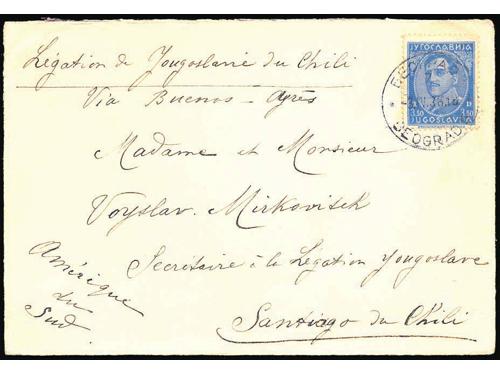 Légation de Yougoslavie du Chili
Via Buenos-Ayres
Madame et Monsieur
Voyslav. Mirkovitch
Secrétaire à la Légation Yougoslave
Santiago du Chili
Amérique
du
Sud.
ЈУГОСЛАВИЈА
D
3.50 3.50
JUGOSLAVIJA
BEOGRAD